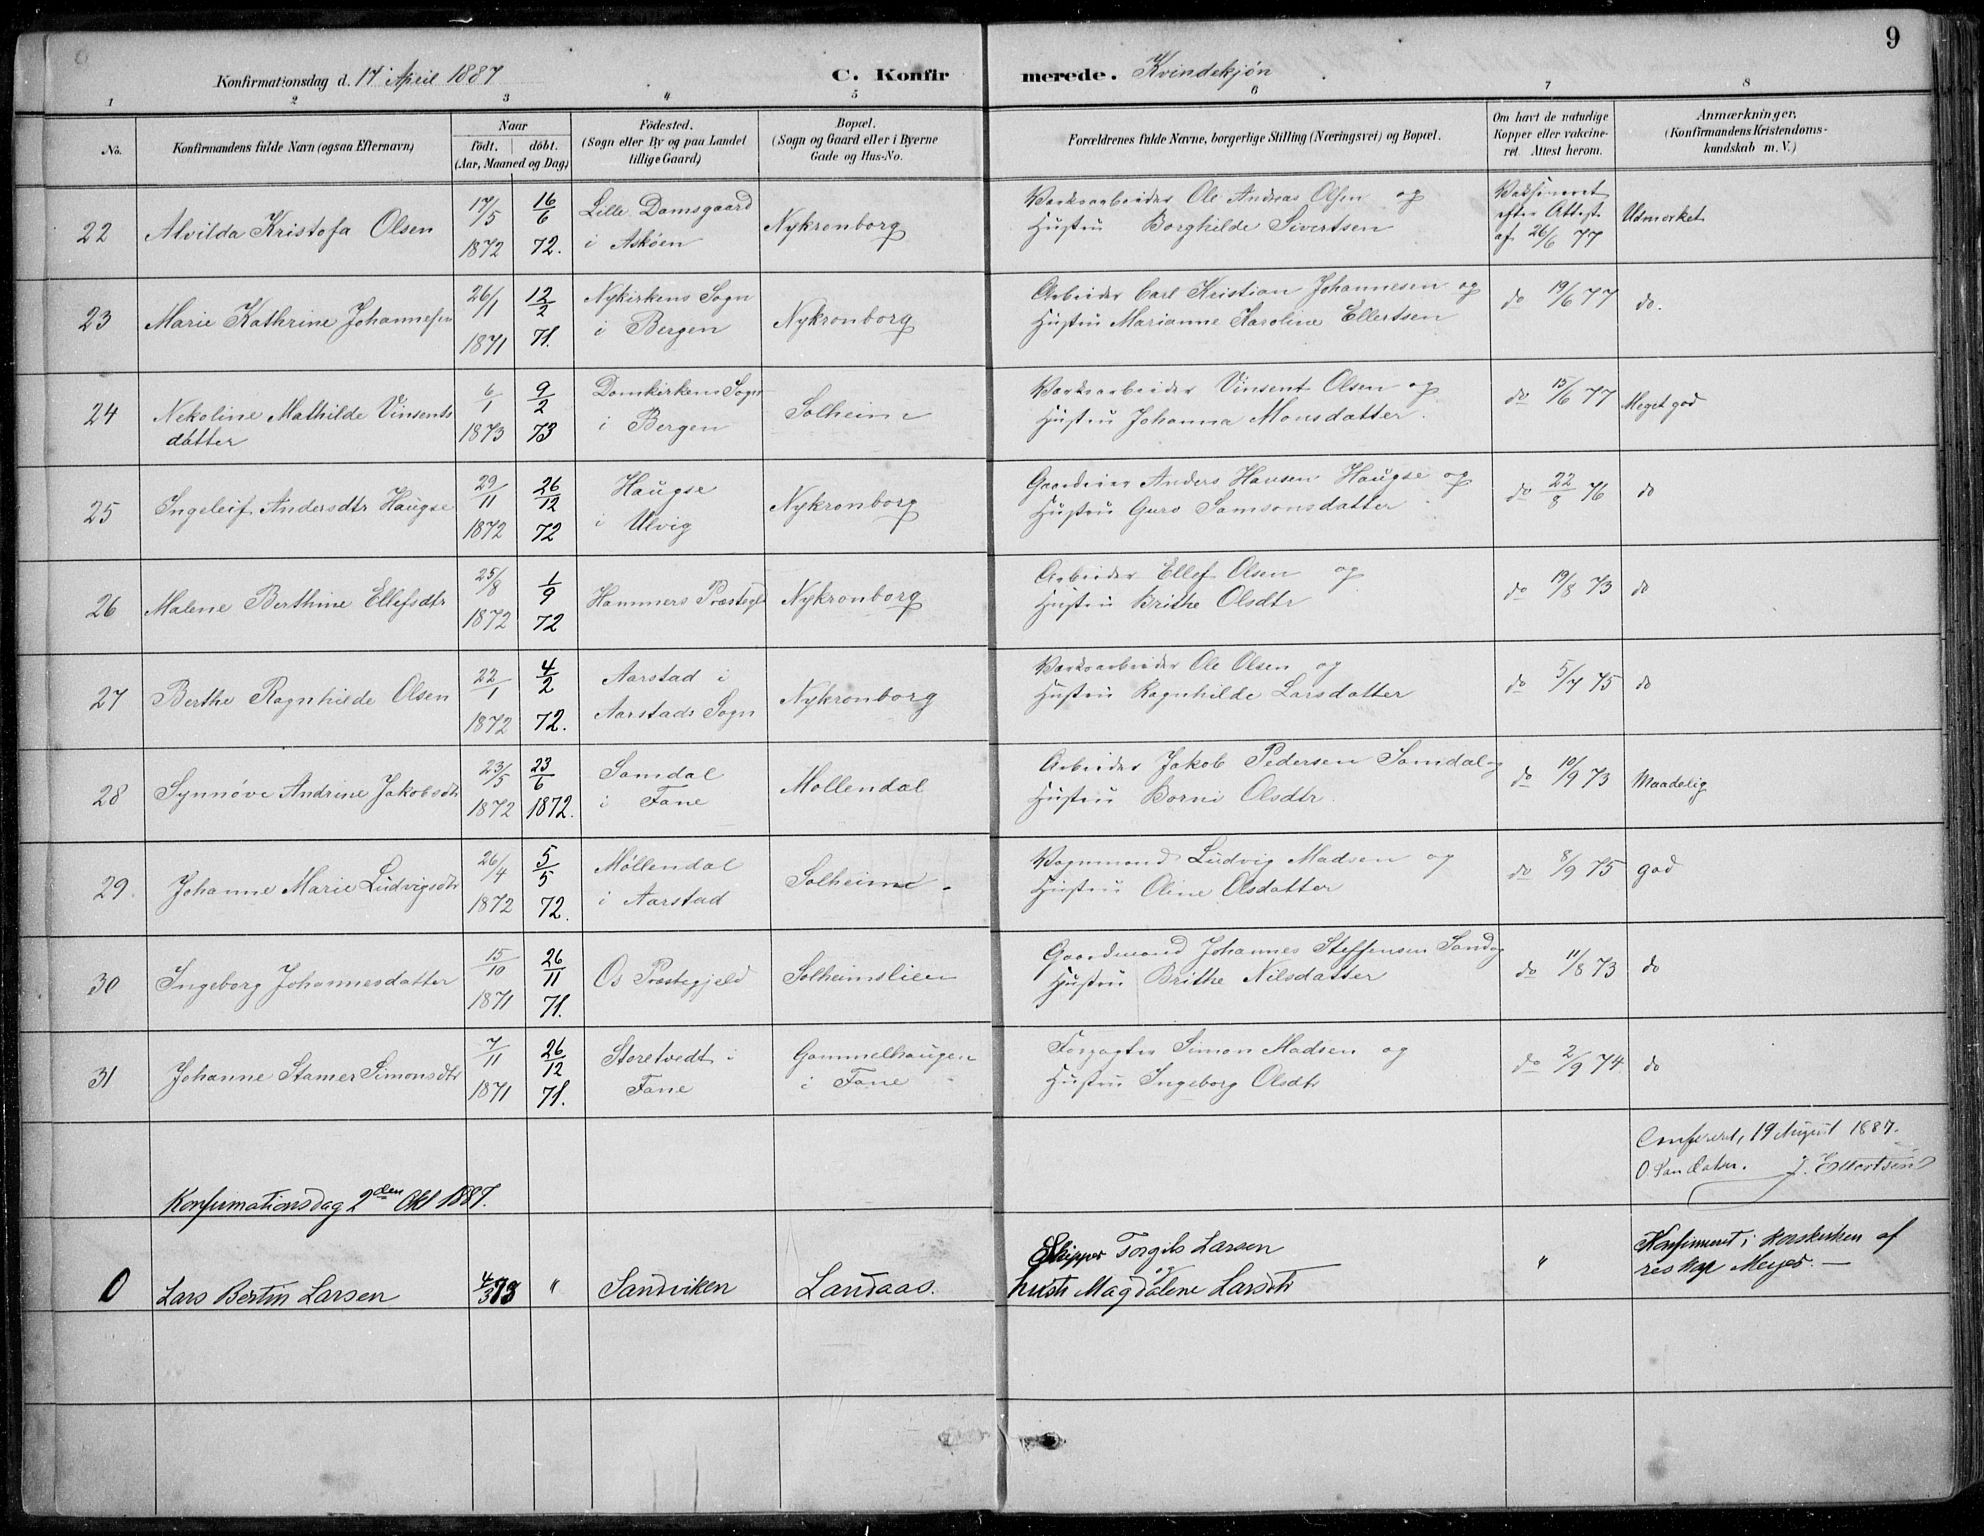 9
Konfirmationsdag d. 17 April 1887 C. Konfirmerede. Kvindekjøn
1 2 3 4 5 6 7 8
No. Konfirmandens fulde Navn (ogsaa Efternavn) Naar født. døbt. (Aar, Maaned og Dag) Fødested. (Sogn eller By og paa Landet tillige Gaard) Bopæl. (Sogn og Gaard eller i Byerne Gade og Hus-No. Forældrenes fulde Navne, borgerlige Stilling (Næringsvei) og Bopæl. Om havt de naturlige Kopper eller vakcineret. Attest herom. Anmærkninger, (Konfirmandens Kristendomskundskab m. V.)
22 Alvilda Kristofa Olsen 17/5 1872 16/6 72. Lille Damsgaard i Askøen Nykronborg Værksarbeider Ole Andreas Olsen og Hustru Borghilde Sivertsen Vaksineret efter Attest af 26/6 77 Udmerket
23 Marie Kathrine Johannesen 26/1 1871 12/2 71. Nykirkens Sogn i Bergen Nykronborg Arbeider Carl Kristian Johannesen og Hustru Marianne Karoline Ellertsen do 19/6 77 do.
24 Nekoline Mathilde Vinsentsdatter 6/1 1873 9/2 73 Domkirkens Sogn i Bergen Solheim Værksarbeider Vinsent Olsen og Hustru Johanna Monsdatter do 15/6 77 Meget god
25 Ingeleif Andersdtr Haugse 29/11 1872 26/12 72 Haugse i Ulvig Nykronborg Gaardeier Anders Hansen Haugse og Hustru Guro Samsonsdatter do 22/8 76 do
26 Malene Berthine Ellefsdtr 25/8 1872 1/9 72 Hammers Præstegl Nykronborg Arbeider Ellef Olsen og Hustru Brithe Olsdtr do 19/8 73 do
27 Berthe Ragnhilde Olsen 22/1 1872 4/2 72. Aarstad i Aarstads Sogn Nykronborg Værksarbeider Ole Olsen og Hustru Ragnhilde Larsdatter do 5/7 75 do
28 Synnøve Andrine Jakobsdtr 23/5 1872 23/6 1872. Samdal i Fane Møllendal Arbeider Jakob Pedersen Samdal og Hustru Borni Olsdtr do 10/9 73 Maadelig
29. Johanne Marie Ludvigsdtr 26/4 1872 5/5 72. Møllendal i Aarstad Solheim Vognmand Ludvig Madsen og Hustru Oline Olsdatter do 8/9 75 god
30 Ingeborg Johannesdatter 15/10 1871 26/11 71. Os Præstegjeld Solheimslien Gaardmand Johannes Steffensen Sand og Hustru Brithe Nilsdatter do 11/8 73 do
31 Johanne Stamer Simonsdtr 7/11 1871 26/12 71. Storetvedt i Fane Gammelhaugen i Fane Forpagter Simon Madsen og Hustru Ingeborg Olsdtr do 2/9 74 do
Confereret, 19 August 1887.
J. Ellertsen
Konfirmationsdag 2den Okt 1887.
0 Lars Bertin Larsen 4/3 73 " Sandviken Landaas. Skipper Torgils Larsen og hustr Magdalene Larsdtr " Konfirmeret i Korskirken af res kap Meyer. —